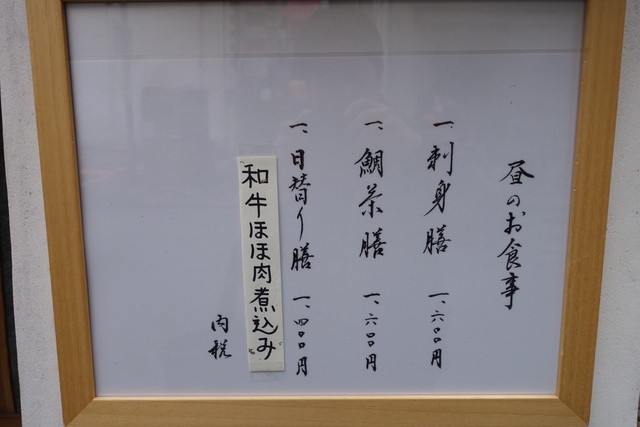 昼のお食事
一、刺身膳 一、六〇〇円
一、鯛茶膳 一、六〇〇円
一、日替り膳 一、四〇〇円
和牛ほほ肉煮込み
内税